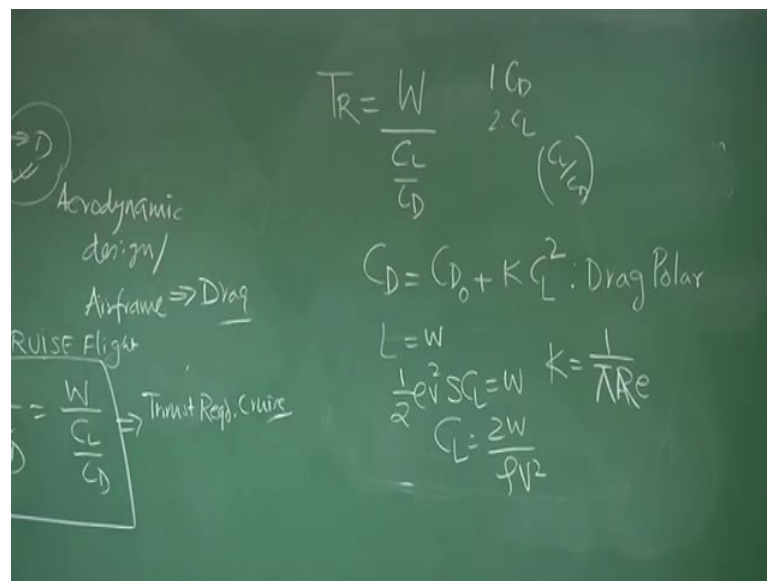 ⇒ D
Aerodynamic
design/
Airframe ⇒ Drag
RUISE Flight
= W / (CL / CD) ⇒ Thrust Reqd. Cruise
D
TR = W / (CL / CD)
1 CD
2. CL
(CL/CD)
CD = CD0 + K CL² : Drag Polar
L = W
½ ρv² SCL = W
K = 1 / πARe
CL = 2W / ρV²